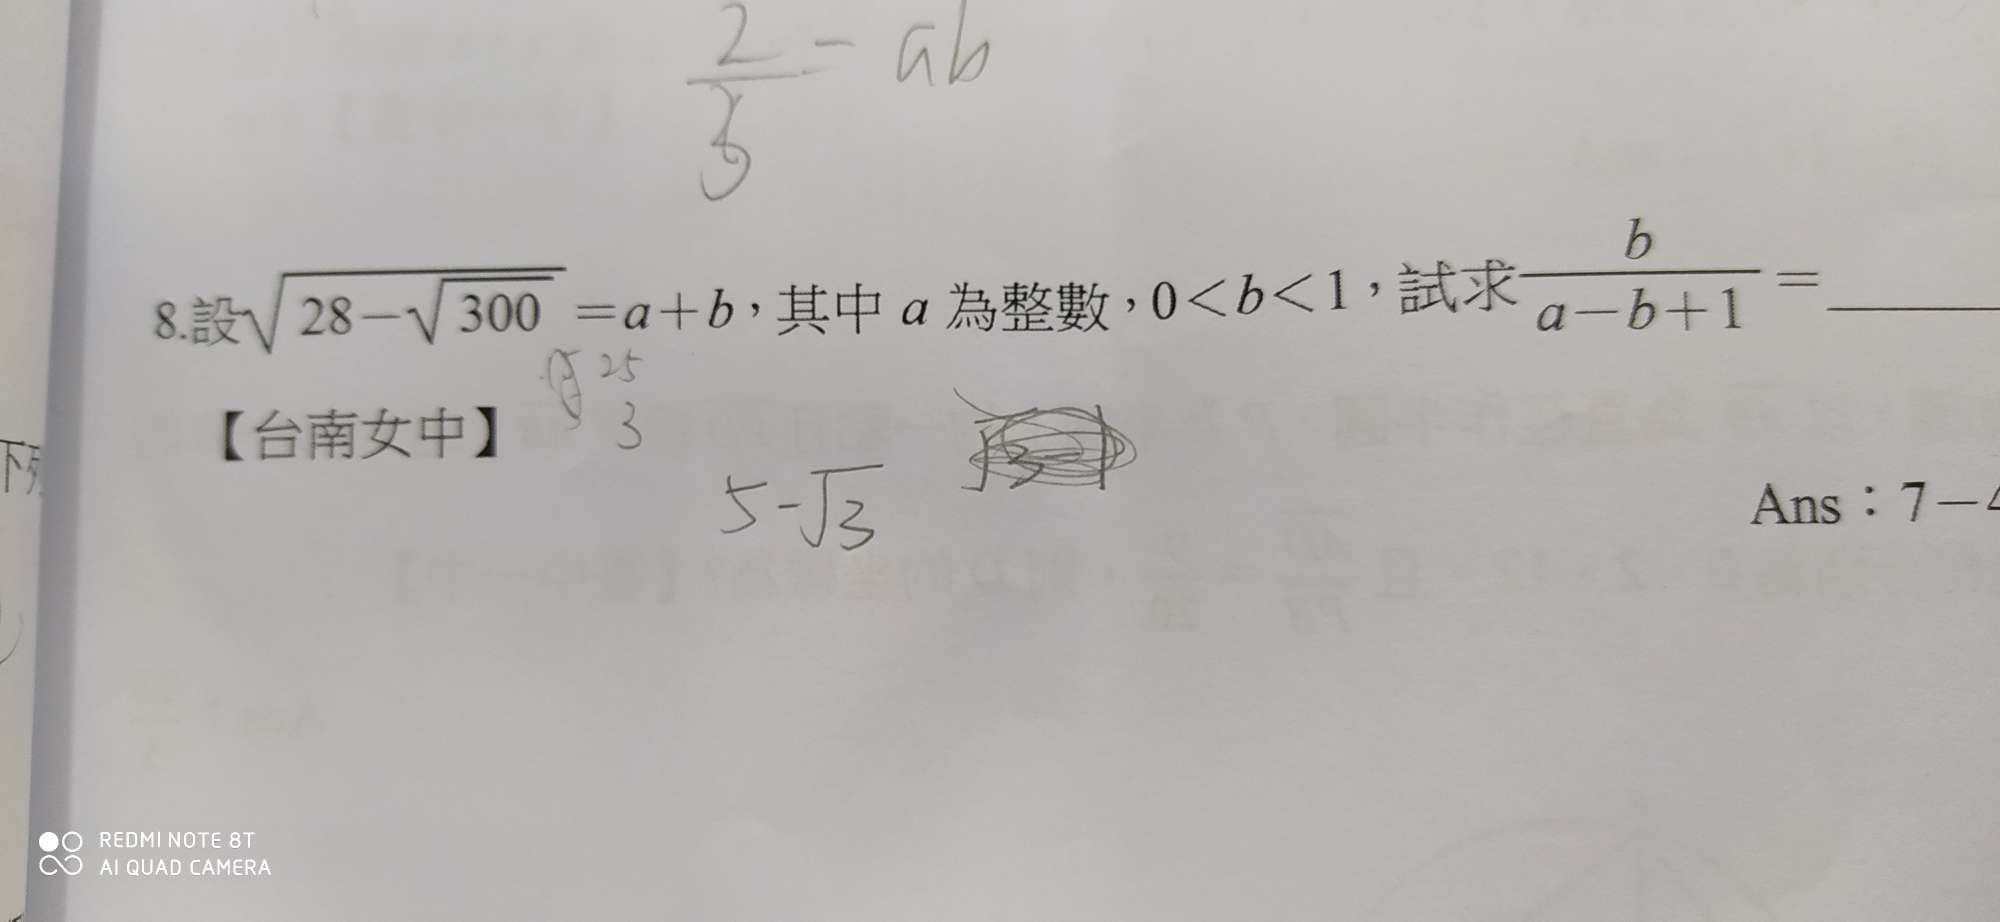 2/3 = ab
8.設√(28-√300) = a+b，其中 a 為整數，0<b<1，試求 b/(a-b+1) =
25
【台南女中】
3
5-√3
Ans：7-4
REDMI NOTE 8T
AI QUAD CAMERA